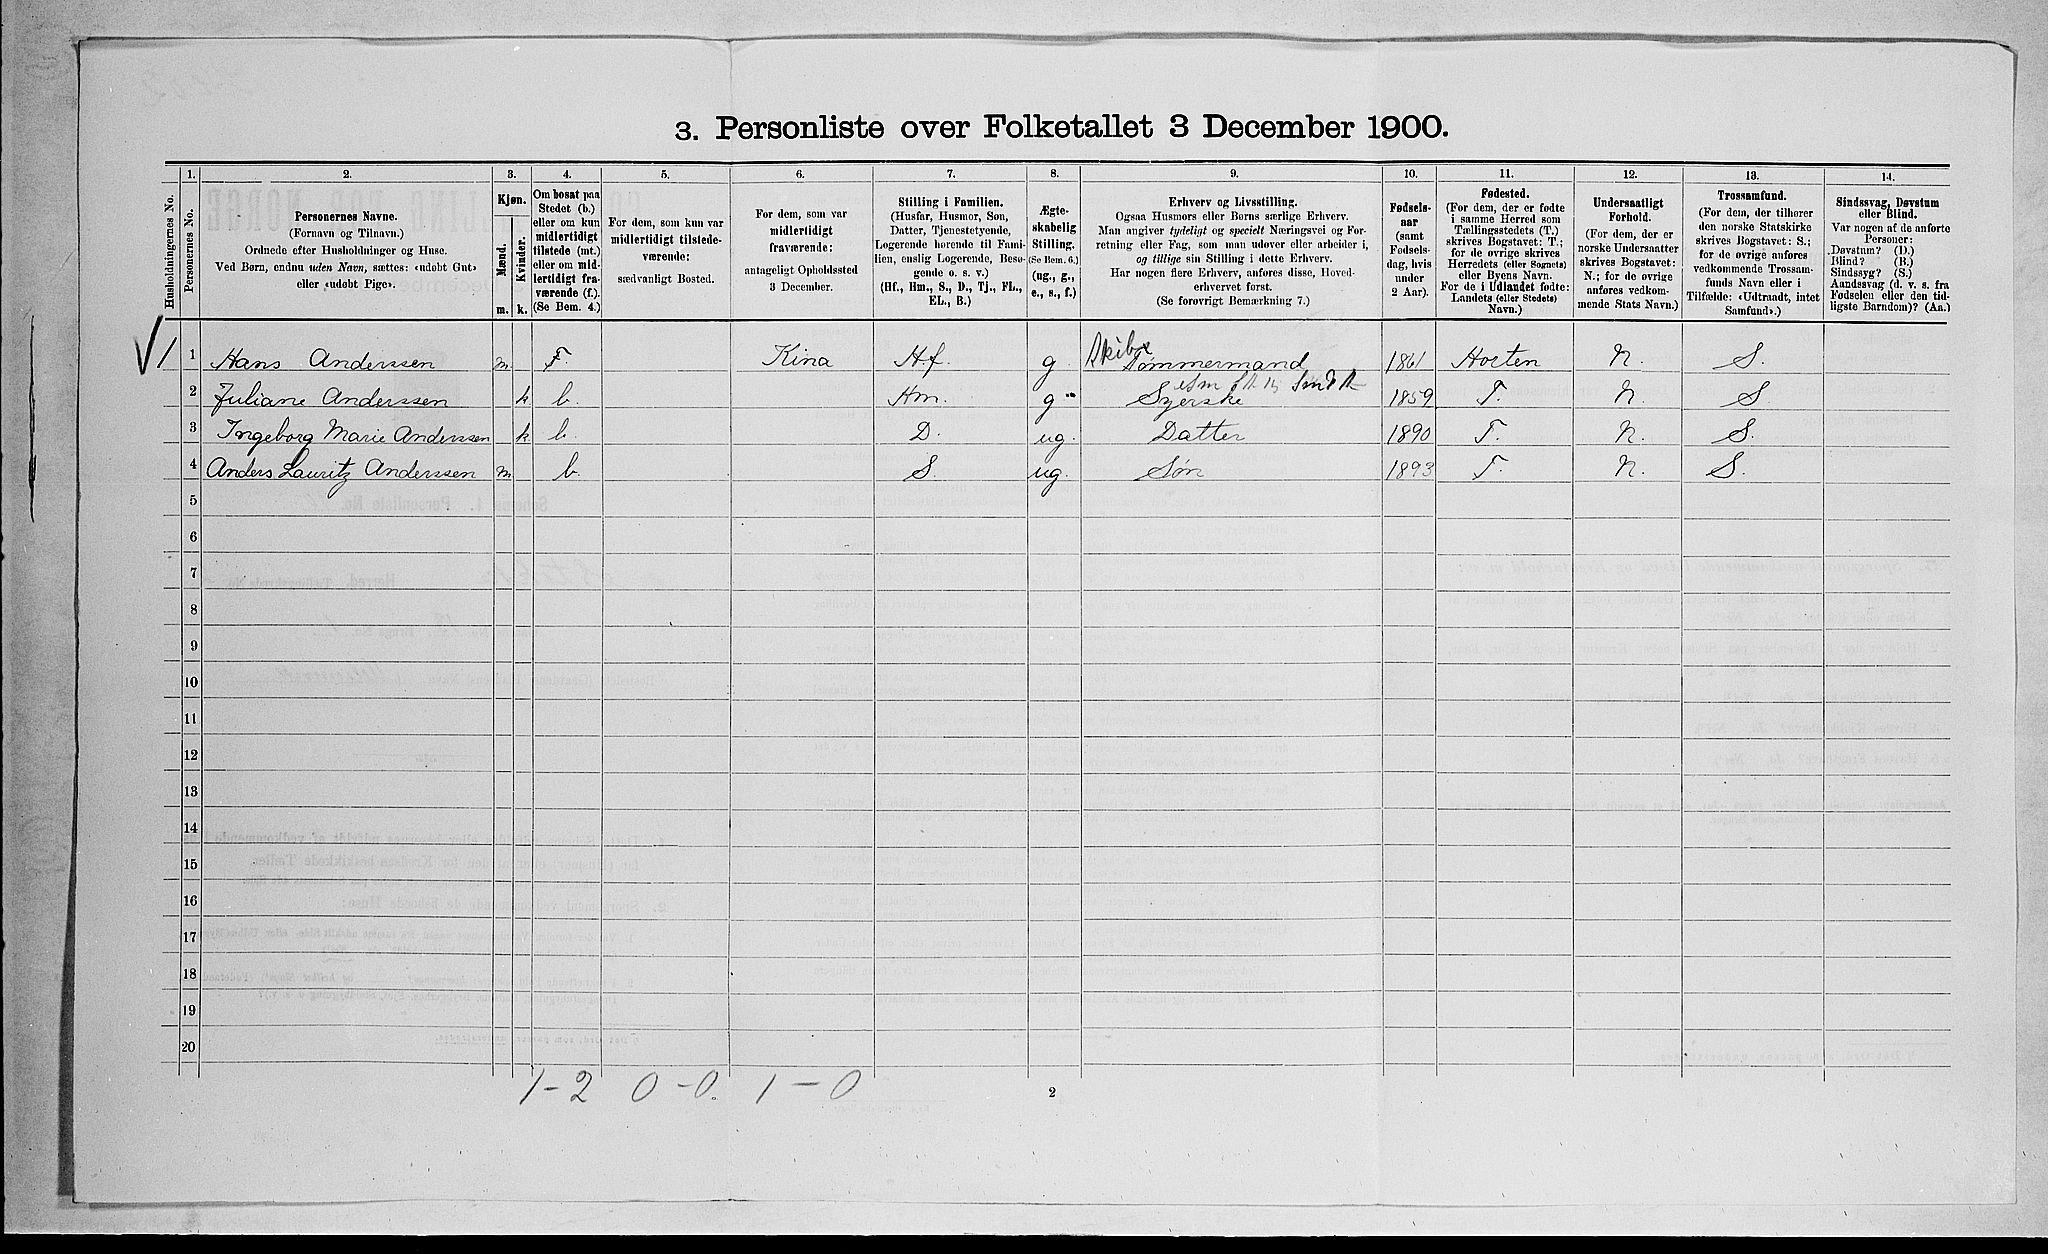 3. Personliste over Folketallet 3 December 1900.
1. 2. 3. 4. 5. 6. 7. 8. 9. 10. 11. 12. 13. 14.
Husholdningernes No.
Personernes No.
Personernes Navne.
(Fornavn og Tilnavn.)
Ordnede efter Husholdninger og Huse.
Ved Børn, endnu uden Navn, sættes: «udøbt Gut»
eller «udøbt Pige».
Kjøn.
Mænd.
Kvinder.
m. k.
Om bosat paa
Stedet (b.)
eller om kun
midlertidigt
tilstede (mt.)
eller om mid-
lertidigt fra-
værende (f.).
(Se Bem. 4.)
For dem, som kun var
midlertidigt tilstede-
værende:
sædvanligt Bosted.
For dem, som var
midlertidigt
fraværende:
antageligt Opholdssted
3 December.
Stilling i Familien.
(Husfar, Husmor, Søn,
Datter, Tjenestetyende,
Logerende hørende til Fami-
lien, enslig Logerende, Besø-
gende o. s. v.)
(Hf., Hm., S., D., Tj., FL.,
EL., B.)
Ægte-
skabelig
Stilling.
(Se Bem. 6.)
(ug., g.,
e., s., f.)
Erhverv og Livsstilling.
Ogsaa Husmors eller Børns særlige Erhverv.
Man angiver tydeligt og specielt Næringsvei og For-
retning eller Fag, som man udøver eller arbeider i,
og tillige sin Stilling i dette Erhverv.
Har nogen flere Erhverv, anføres disse, Hoved-
erhvervet først.
(Se forøvrigt Bemærkning 7.)
Fødsels-
aar
(samt
Fødsels-
dag, hvis
under
2 Aar).
Fødested.
(For dem, der er fødte
i samme Herred som
Tællingsstedets (T.)
skrives Bogstavet: T.;
for de øvrige skrives
Herredets (eller Sognets)
eller Byens Navn.
For de i Udlandet fødte:
Landets (eller Stedets)
Navn.)
Undersaatligt
Forhold.
(For dem, der er
norske Undersaatter
skrives Bogstavet:
N.; for de øvrige
anføres vedkom-
mende Stats Navn.)
Trossamfund.
(For dem, der tilhører
den norske Statskirke
skrives Bogstavet: S.;
for de øvrige anføres
vedkommende Trossam-
funds Navn eller i
Tilfælde: «Udtraadt, intet
Samfund».)
Sindssvag, Døvstum
eller Blind.
Var nogen af de anførte
Personer:
Døvstum? (D.)
Blind? (B.)
Sindssyg? (S.)
Aandssvag (d. v. s. fra
Fødselen eller den tid-
ligste Barndom)? (Aa.)
1 1 Hans Anderssen m. F. Kina H.f. g. Skibs Tømmermand 1861 Horten N. S.
2 Juliane Anderssen k b. Hm. g Syerske 1859 T. N. S
3 Ingeborg Marie Anderssen k b. D. ug. Datter 1890 T. N. S.
4 Anders Lauritz Anderssen m b. S. ug. Søn 1893 T. N. S.
5
6
7
8
9
10
11
12
13
14
15
16
17
18
19
20
1 – 2 0 – 0. 1 – 0
2